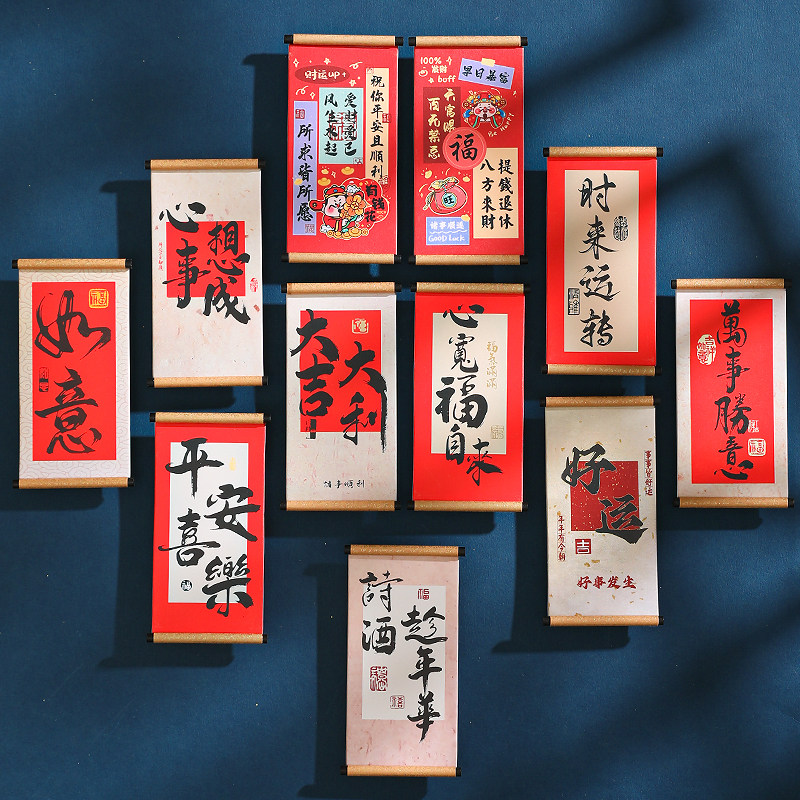 财运up+
祝你平安且顺利
爱财爱己
风生水起
所求皆所愿
有钱花
100%
发财
buff
早日暴富
天官赐
百无禁忌
福
提錢退休
八方來財
旺
諸事順遂
Good Luck
心想
事成
时来运转
如意
大吉
大利
诸事顺利
心寬福自来
福气满满
萬事勝意
平安
喜樂
福
好运
事事皆好运
千年有今朝
吉
好事发生
詩酒
趁年華
福